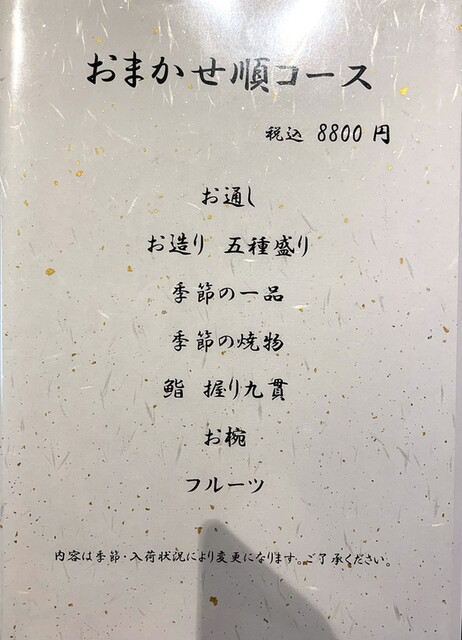 おまかせ順コース
税込 8800円
お通し
お造り 五種盛り
季節の一品
季節の焼物
鮨 握り九貫
お椀
フルーツ
内容は季節・入荷状況により変更になります。ご了承ください。